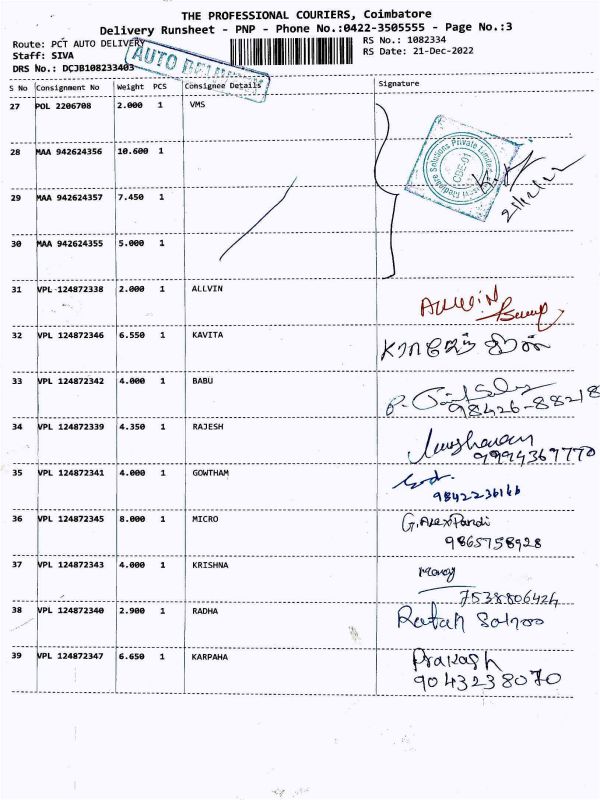 THE PROFESSIONAL COURIERS, Coimbatore
Delivery Runsheet - PNP - Phone No.:0422-3505555 - Page No.:3
Route: PCT AUTO DELIVERY
RS No.: 1082334
Staff: SIVA
RS Date: 21-Dec-2022
DRS No.: DCJB108233403
AUTO DELIVERY
S No Consignment No Weight PCS Consignee Details Signature
27 POL 2206708 2.000 1 VMS
28 MAA 942624356 10.600 1
Solutions Private Limited
CBE-01
21/12/22
29 MAA 942624357 7.450 1
30 MAA 942624355 5.000 1
31 VPL 124872338 2.000 1 ALLVIN
32 VPL 124872346 6.550 1 KAVITA
33 VPL 124872342 4.000 1 BABU
98426-88218
34 VPL 124872339 4.350 1 RAJESH
9994369770
35 VPL 124872341 4.000 1 GOWTHAM
9842236166
36 VPL 124872345 8.000 1 MICRO G. Alex Pandi
9865758928
37 VPL 124872343 4.000 1 KRISHNA
7538806424
38 VPL 124872340 2.900 1 RADHA
39 VPL 124872347 6.650 1 KARPAHA Prakash
9043238070